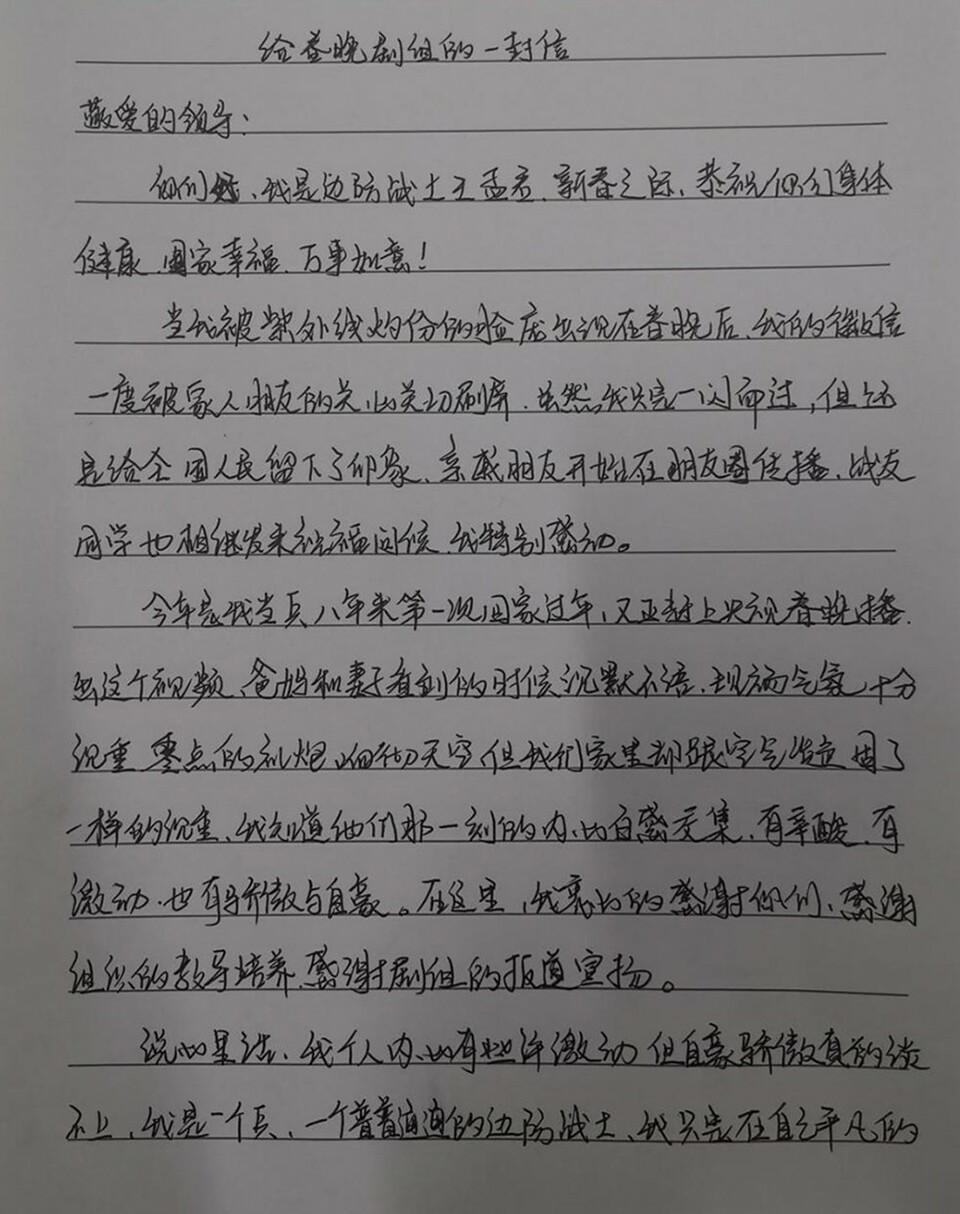 给春晚剧组的一封信
敬爱的领导：
你们好、我是边防战士王孟君、新春之际、恭祝你们身体
健康、阖家幸福、万事如意！
当我被紫外线灼伤的脸庞出现在春晚后、我的微信
一度被家人朋友的关心关切刷屏、虽然我只是一闪而过，但还
是给全国人民留下了印象、亲戚朋友开始在朋友圈传播、战友
同学也相继发来祝福问候、我特别感动。
今年是我当兵八年来第一次回家过年，又正赶上央视春晚播
出这个视频、爸妈和妻子看到的时候沉默不语、现场气氛十分
沉重 零点的礼炮响彻天空、但我们家里却跟空气凝固了
一样的沉重、我知道他们那一刻的内心百感交集、有辛酸、有
激动、也有骄傲与自豪。在这里，我衷心的感谢你们、感谢
组织的教导培养、感谢剧组的报道宣扬。
说心里话、我个人内心有些许激动 但自豪骄傲真的谈
不上、我是一个兵、一个普普通通的边防战士、我只是在自己平凡的